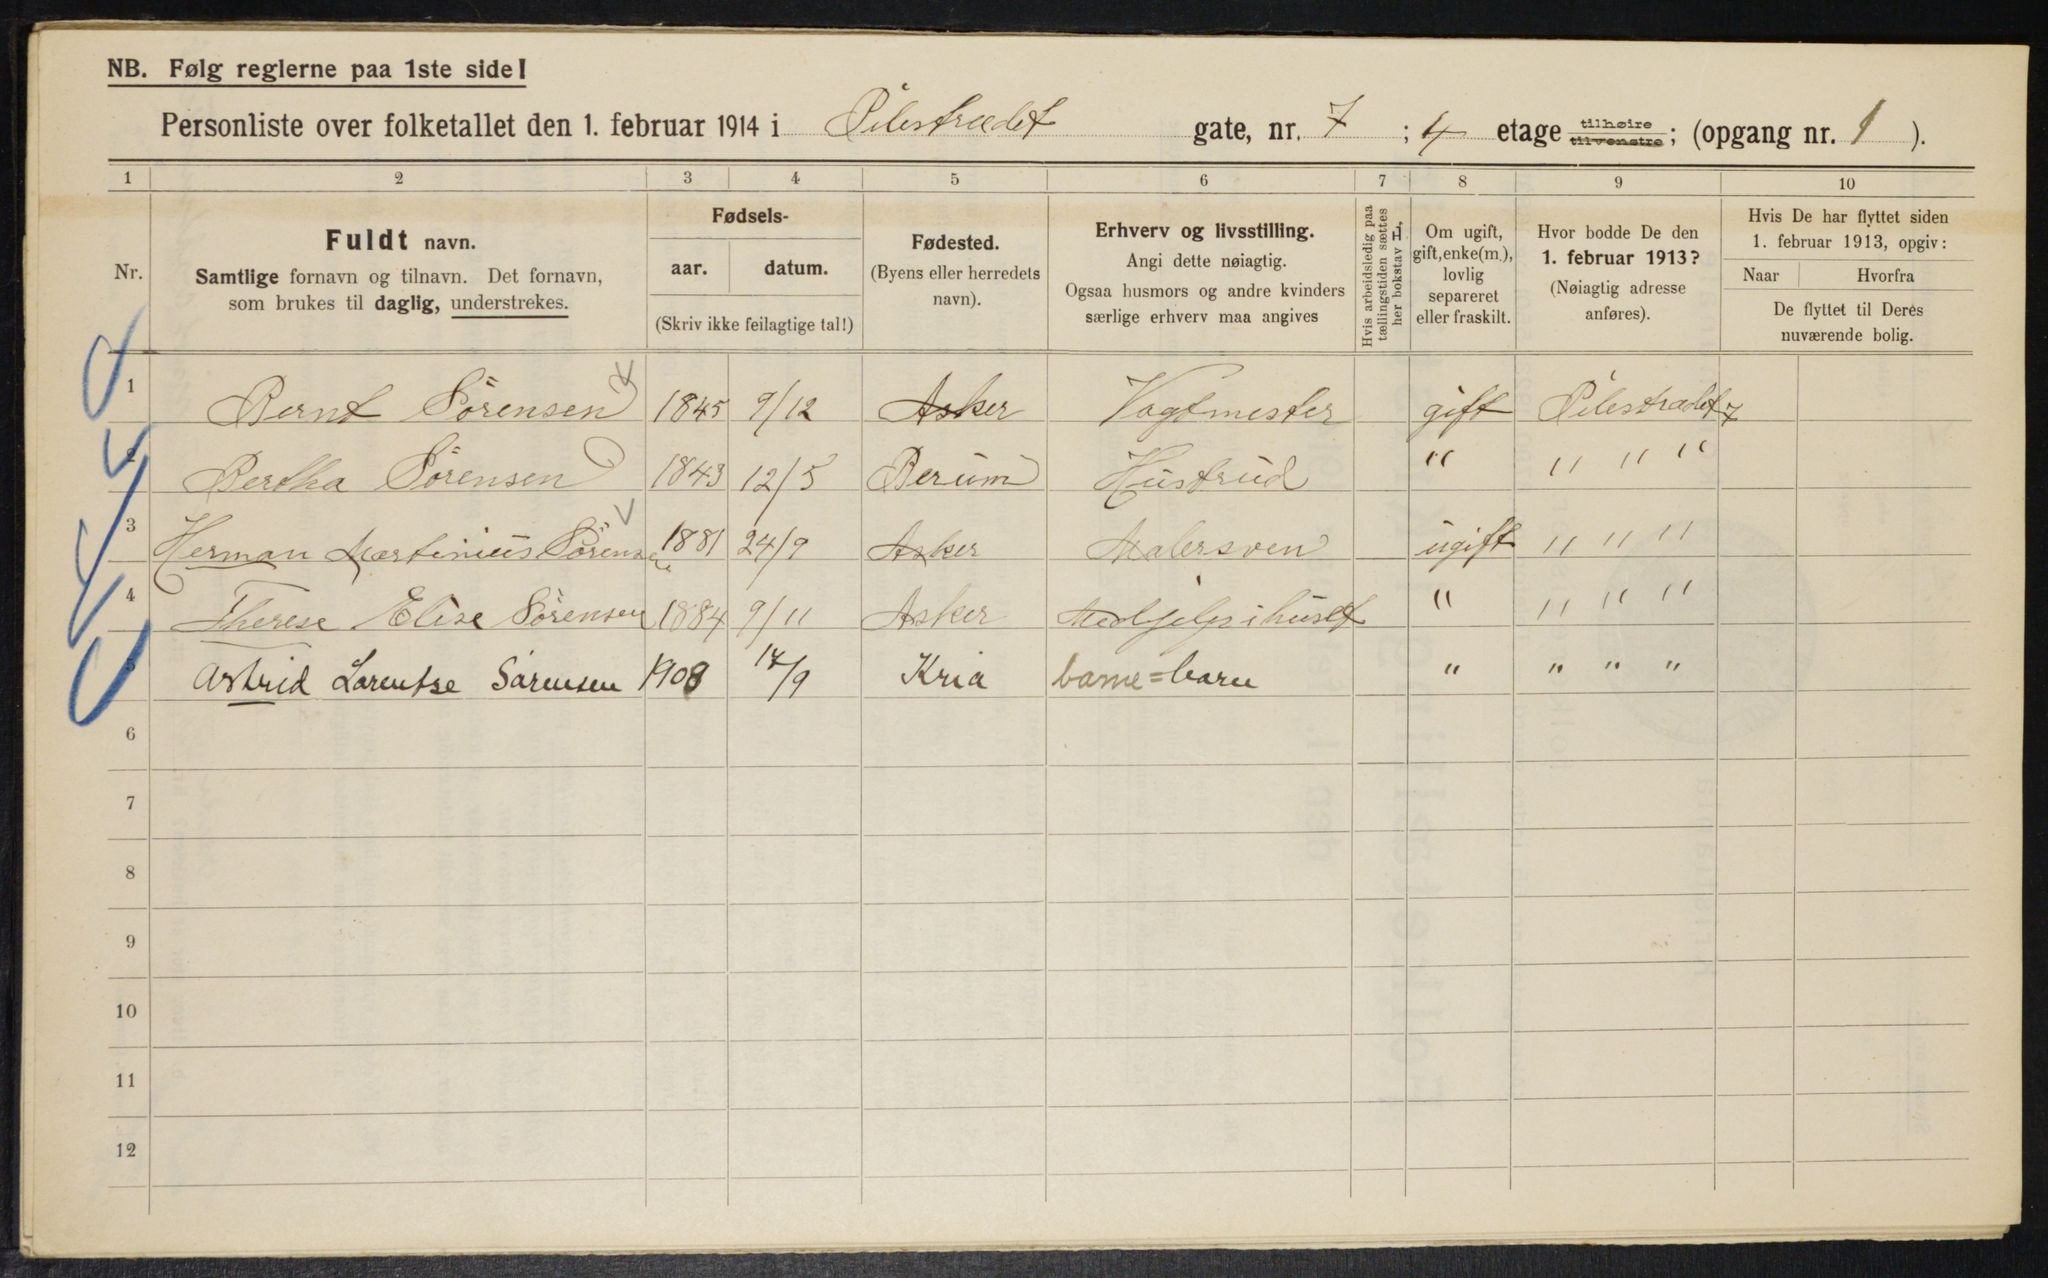 NB. Følg reglerne paa 1ste side!
Personliste over folketallet den 1. februar 1914 i Pilestrædet gate, nr. 7 ; 4 etage tilhøire tilvenstre ; (opgang nr. 1 ).
1 2 3 4 5 6 7 8 9 10
Nr.
Fuldt navn.
Samtlige fornavn og tilnavn. Det fornavn,
som brukes til daglig, understrekes.
Fødsels-
aar. datum.
(Skriv ikke feilagtige tal!)
Fødested.
(Byens eller herredets
navn).
Erhverv og livsstilling.
Angi dette nøiagtig.
Ogsaa husmors og andre kvinders
særlige erhverv maa angives
Hvis arbeidsledig paa
tællingstiden sættes
her bokstav H.
Om ugift,
gift, enke(m.),
lovlig
separeret
eller fraskilt.
Hvor bodde De den
1. februar 1913?
(Nøiagtig adresse
anføres).
Hvis De har flyttet siden
1. februar 1913, opgiv:
Naar Hvorfra
De flyttet til Deres
nuværende bolig.
1 Bernt Sörensen 1845 9/12 Asker Vagtmester gift Pilestrædet 7
2 Bertha Sörensen 1843 12/5 Berum Hustrud " " " "
3 Herman Martinius Sörensen 1881 24/9 Asker Malersven ugift " " "
4 Therese Elise Sörensen 1884 9/11 Asker Medhjelp i huset " " " "
5 Astrid Lorentse Sørensen 1908 14/9 Kria barne=barn " " " "
6
7
8
9
10
11
12